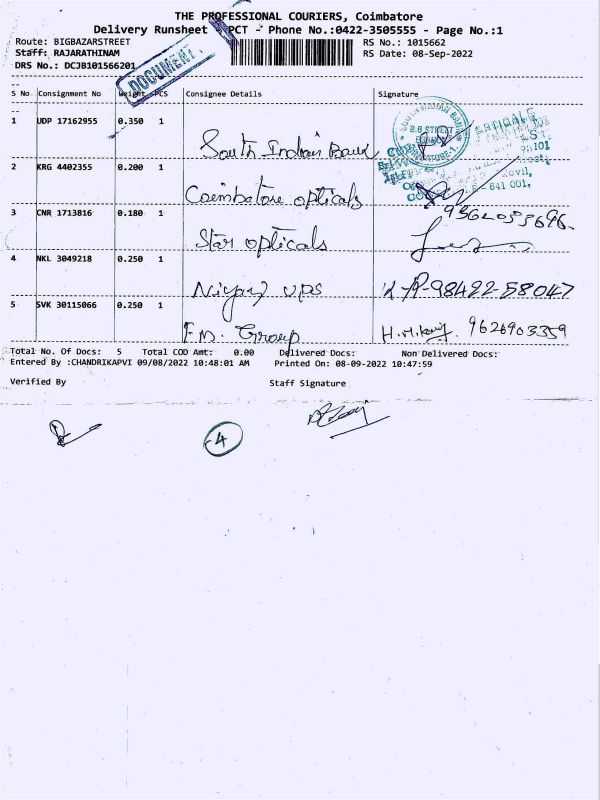 THE PROFESSIONAL COURIERS, Coimbatore
Delivery Runsheet - PCT - Phone No.:0422-3505555 - Page No.:1
Route: BIGBAZARSTREET RS No.: 1015662
Staff: RAJARATHINAM RS Date: 08-Sep-2022
DRS No.: DCJB101566201
DOCUMENT
S No Consignment No Weight PCS Consignee Details Signature
1 UDP 17162955 0.350 1
South Indian Bank
2 KRG 4402355 0.200 1
Coimbatore opticals
3 CNR 1713816 0.180 1
Star opticals
4 NKL 3049218 0.250 1
UPS 98422-58047
5 SVK 30115066 0.250 1
F.M. Group 9626903359
Total No. Of Docs: 5 Total COD Amt: 0.00 Delivered Docs: Non Delivered Docs:
Entered By :CHANDRIKAPVI 09/08/2022 10:48:01 AM Printed On: 08-09-2022 10:47:59
Verified By Staff Signature
4